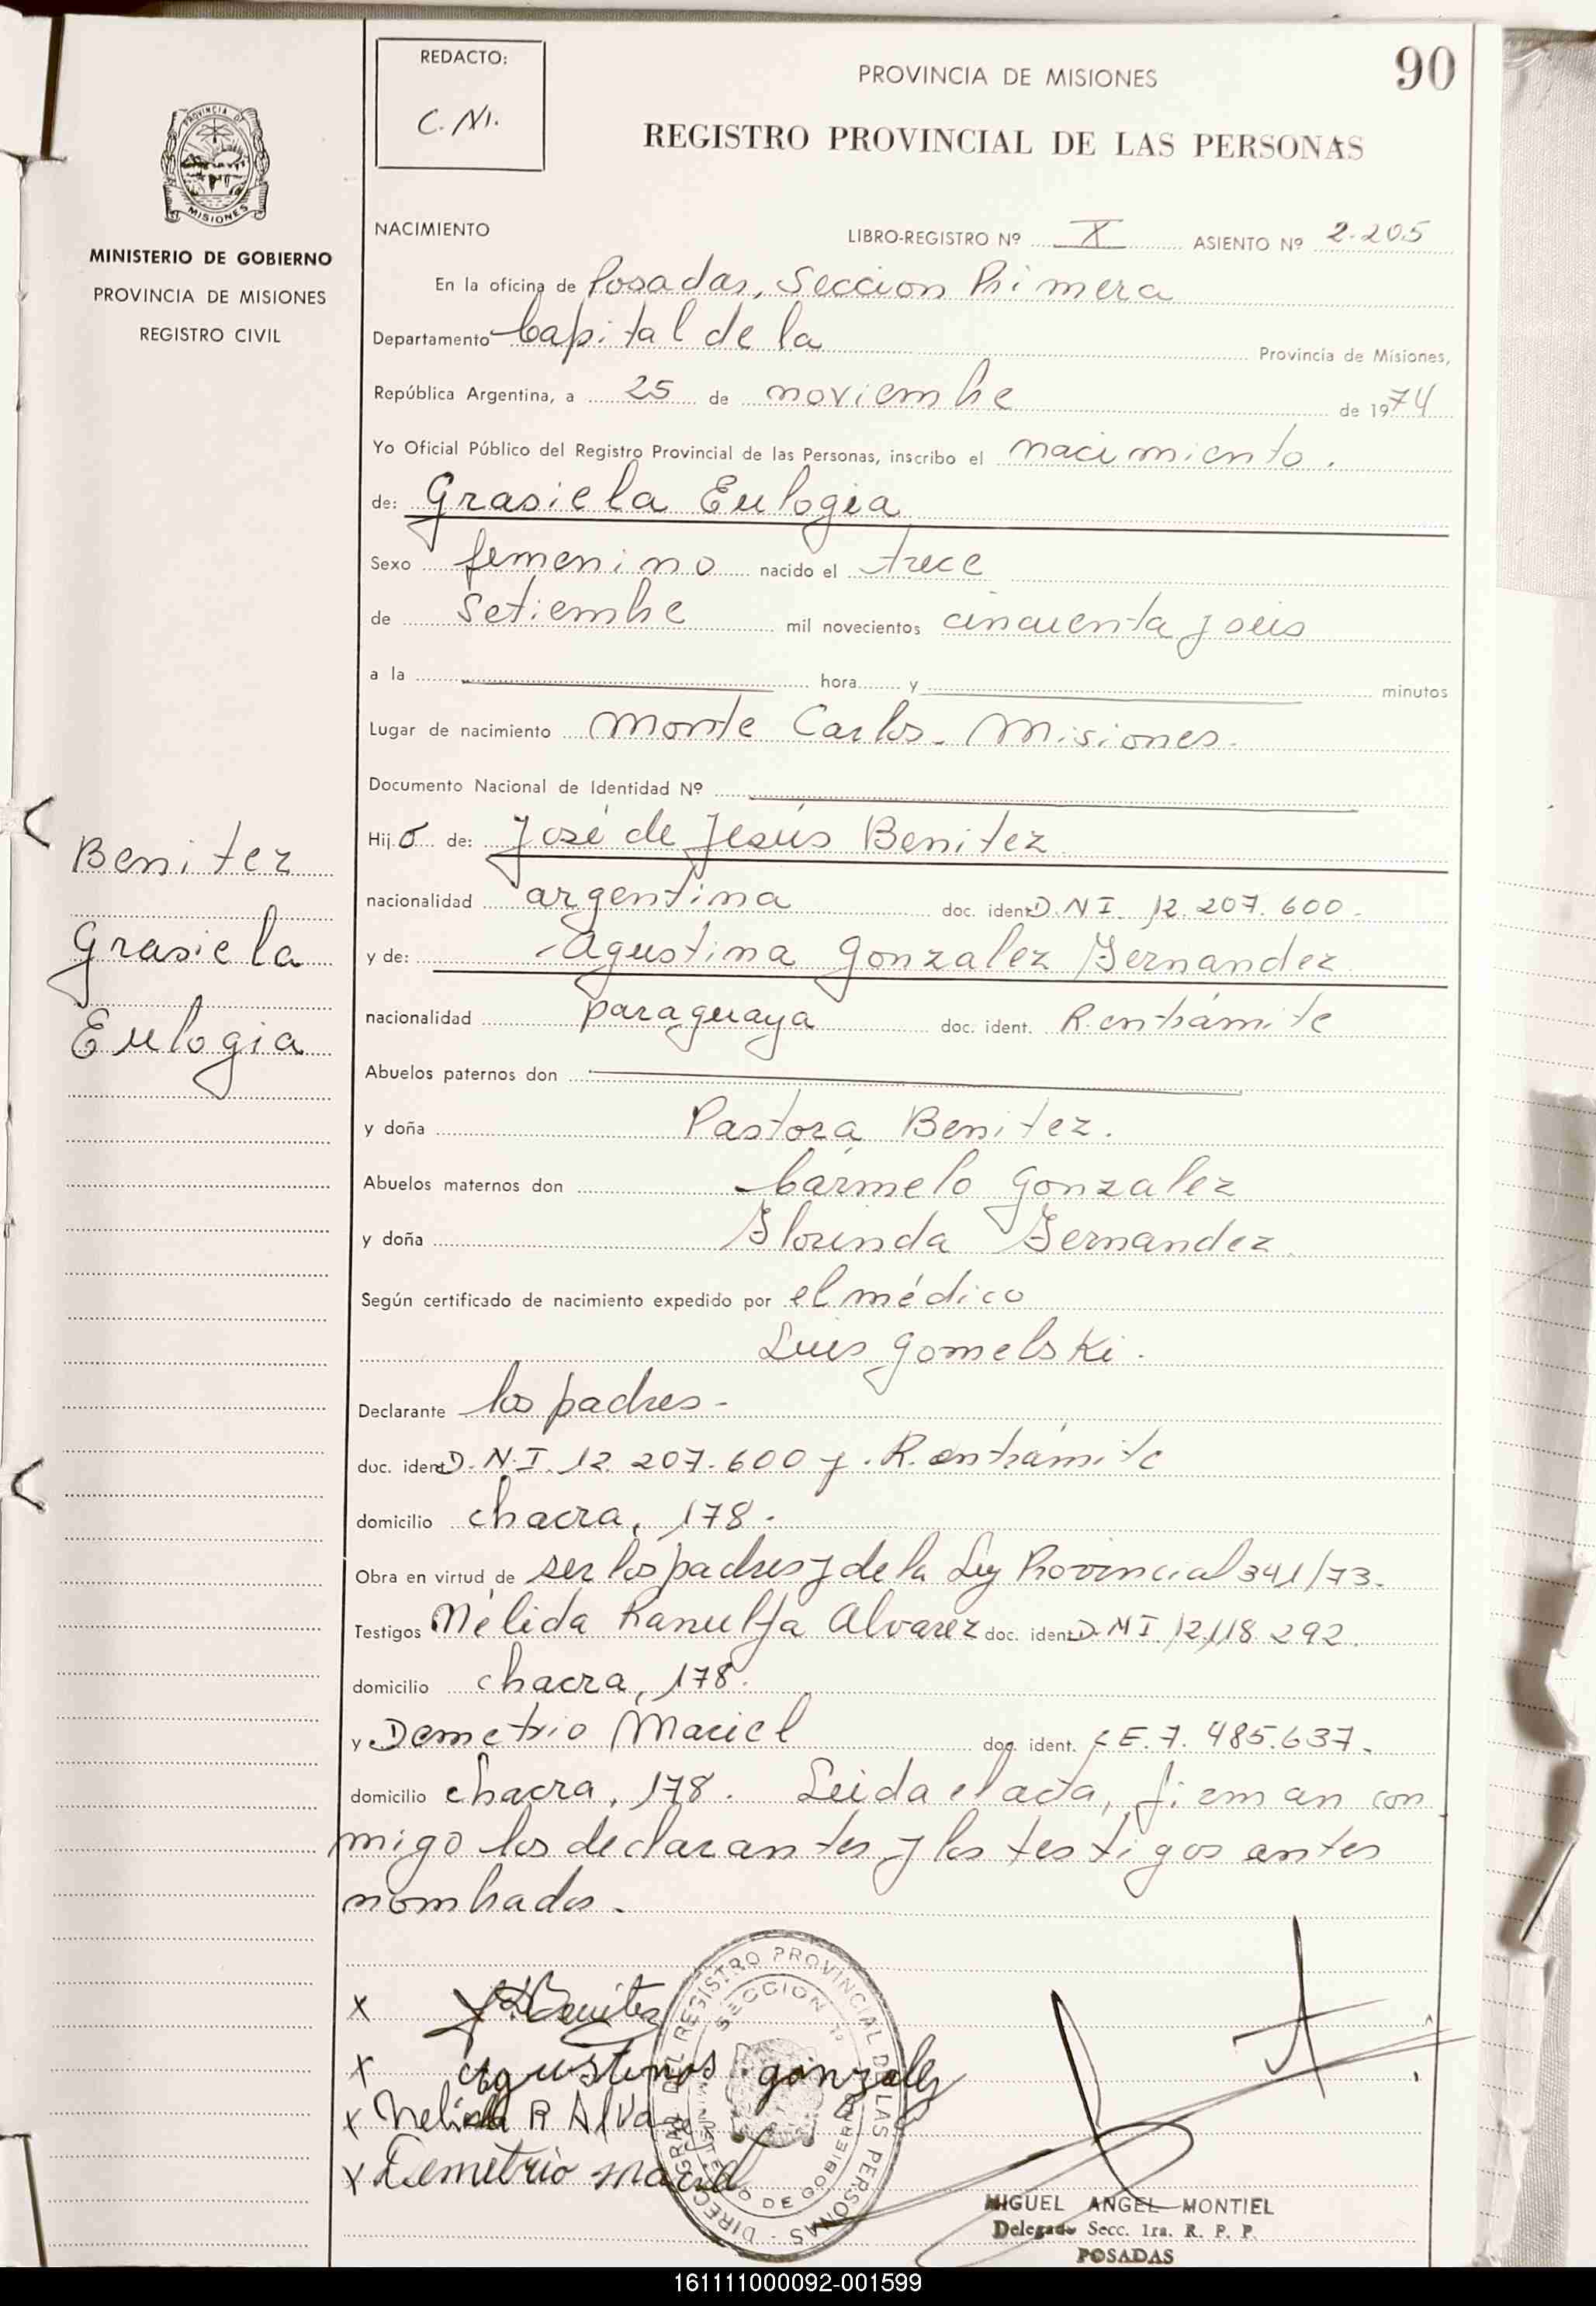 REDACTO:
C. N1.
PROVINCIA DE MISIONES
90
REGISTRO PROVINCIAL DE LAS PERSONAS
PROVINCIA DE
MISIONES
MINISTERIO DE GOBIERNO
PROVINCIA DE MISIONES
REGISTRO CIVIL
NACIMIENTO
LIBRO-REGISTRO Nº X ASIENTO Nº 2.205
En la oficina de Posadas, Seccion Primera
Departamento Capital de la Provincia de Misiones,
República Argentina, a 25 de noviembre de 1974
Yo Oficial Público del Registro Provincial de las Personas, inscribo el nacimiento.
de: Grasiela Eulogia
Sexo femenino nacido el trece
de Setiembre mil novecientos cincuenta y seis
a la hora y minutos
Lugar de nacimiento Monte Carlos. Misiones.
Documento Nacional de Identidad Nº
Hijo de: José de Jesús Benitez
nacionalidad argentina doc. ident. D.N.I. 12.207.600.
y de: Agustina Gonzalez Fernandez
nacionalidad paraguaya doc. ident. R. en trámite
Abuelos paternos don
y doña Pastora Benitez.
Abuelos maternos don Cármelo Gonzalez
y doña Florinda Fernandez
Según certificado de nacimiento expedido por el médico
Luis Gomelski.
Declarante los padres-
doc. ident. D.N.I. 12.207.600 y. R. en trámite
domicilio chacra, 178.
Obra en virtud de ser los padres y de la Ley Provincial 341/73.
Testigos Mélida Ranulfa Alvarez doc. ident. D.N.I. 12.118.292.
domicilio chacra, 178.
y Demetrio Maciel doc. ident. C.E. 7.485.637.
domicilio chacra, 178. Leida el acta, firman con
migo los declarantes y los testigos antes
nombrados.
Benitez
Grasiela
Eulogia
x Benitez
x Agustinas gonzalez
x Nelida R Alva
x Demetrio Maciel
DIREC. GRAL. DEL REGISTRO PROVINCIAL DE LAS PERSONAS
SECCION 1ª
MINISTERIO DE GOBIERNO
MIGUEL ANGEL MONTIEL
Delegado Secc. 1ra. R. P. P.
POSADAS
161111000092-001599